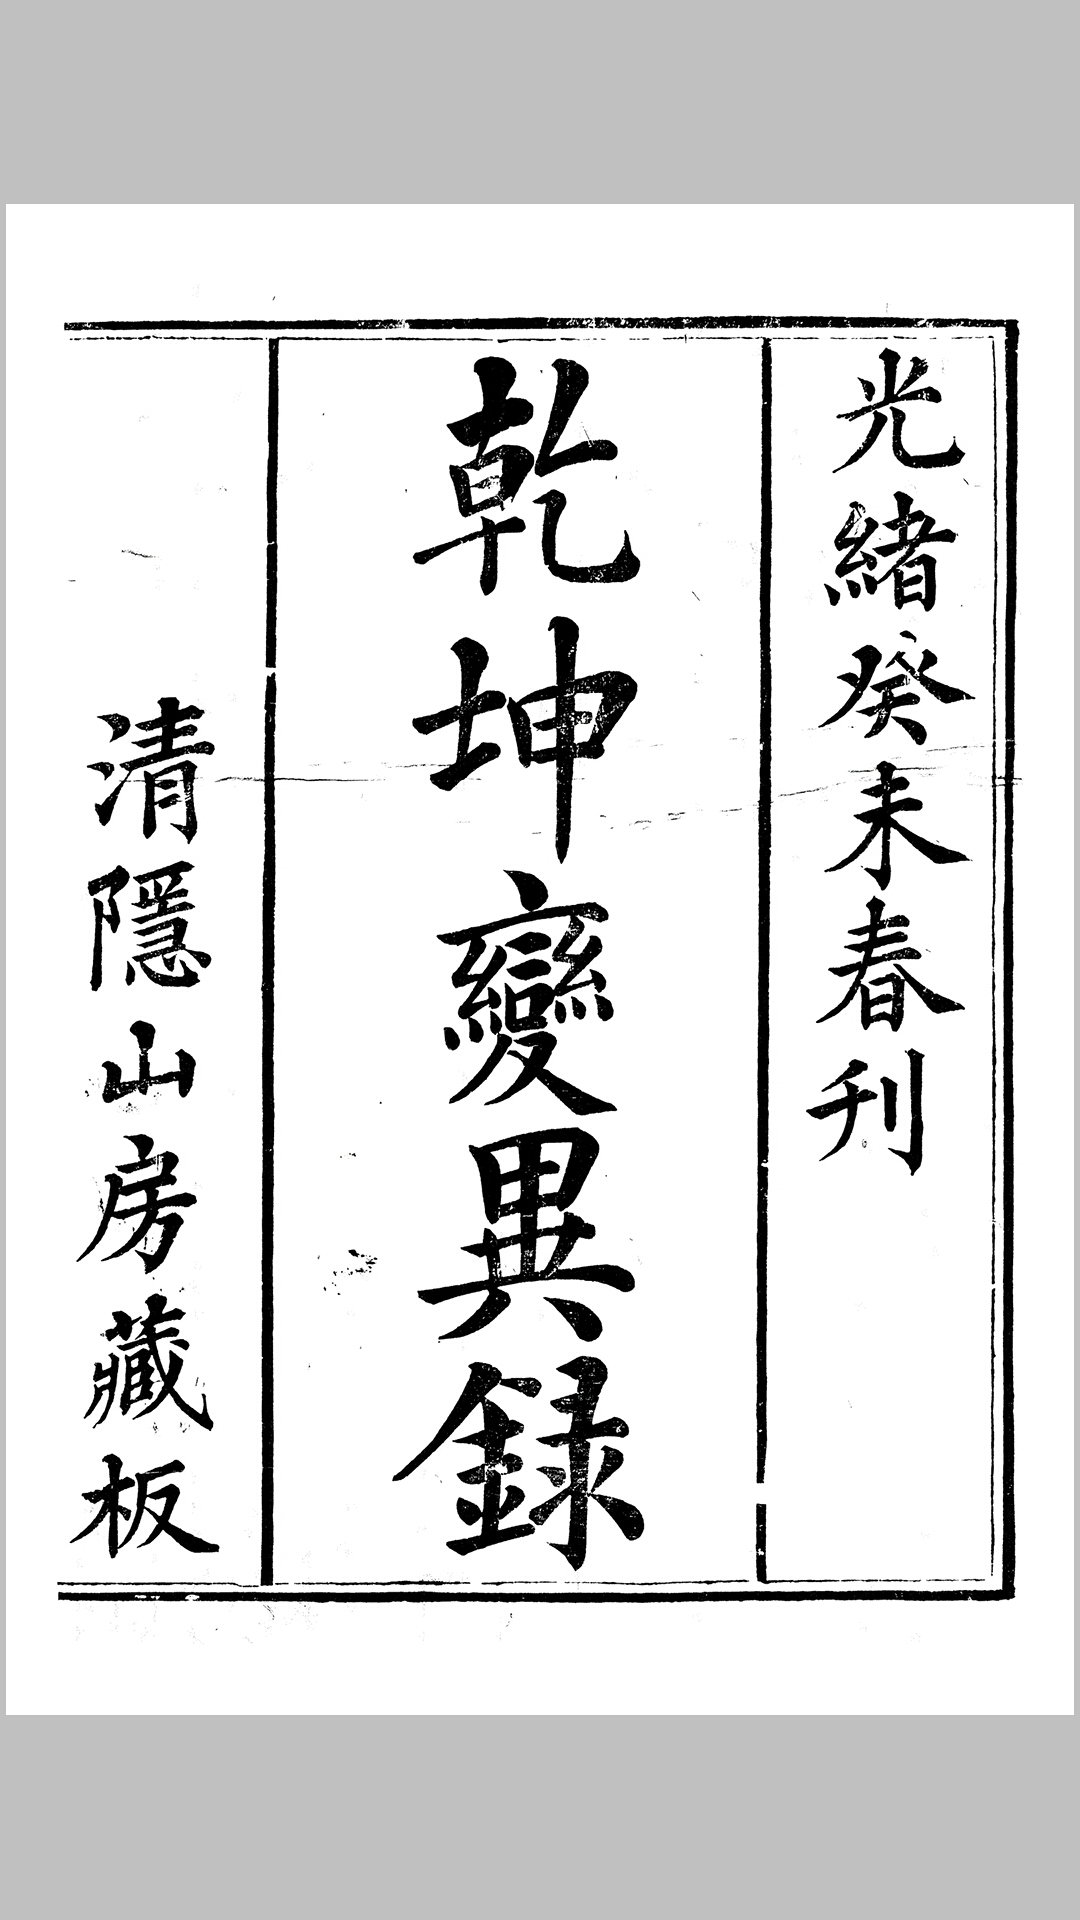 光緒癸未春刊
乾坤變異録
清隱山房藏板